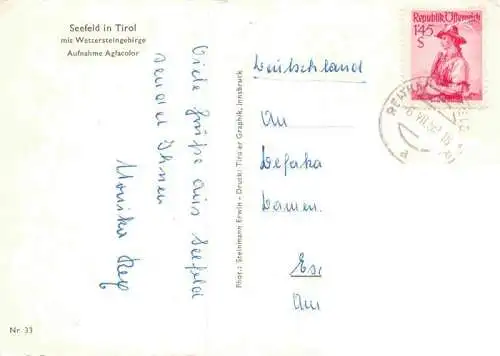 Seefeld in Tirol
mit Wettersteingebirge
Aufnahme Agfacolor
Viele Grüße aus Seefeld
sendet Ihnen
Monika
Nr 33
Phot.: Steinmann Erwin - Druck: Tiroler Graphik, Innsbruck
Republik Österreich
1'45
S
Deutschland
An
Defaka
Damen
Am